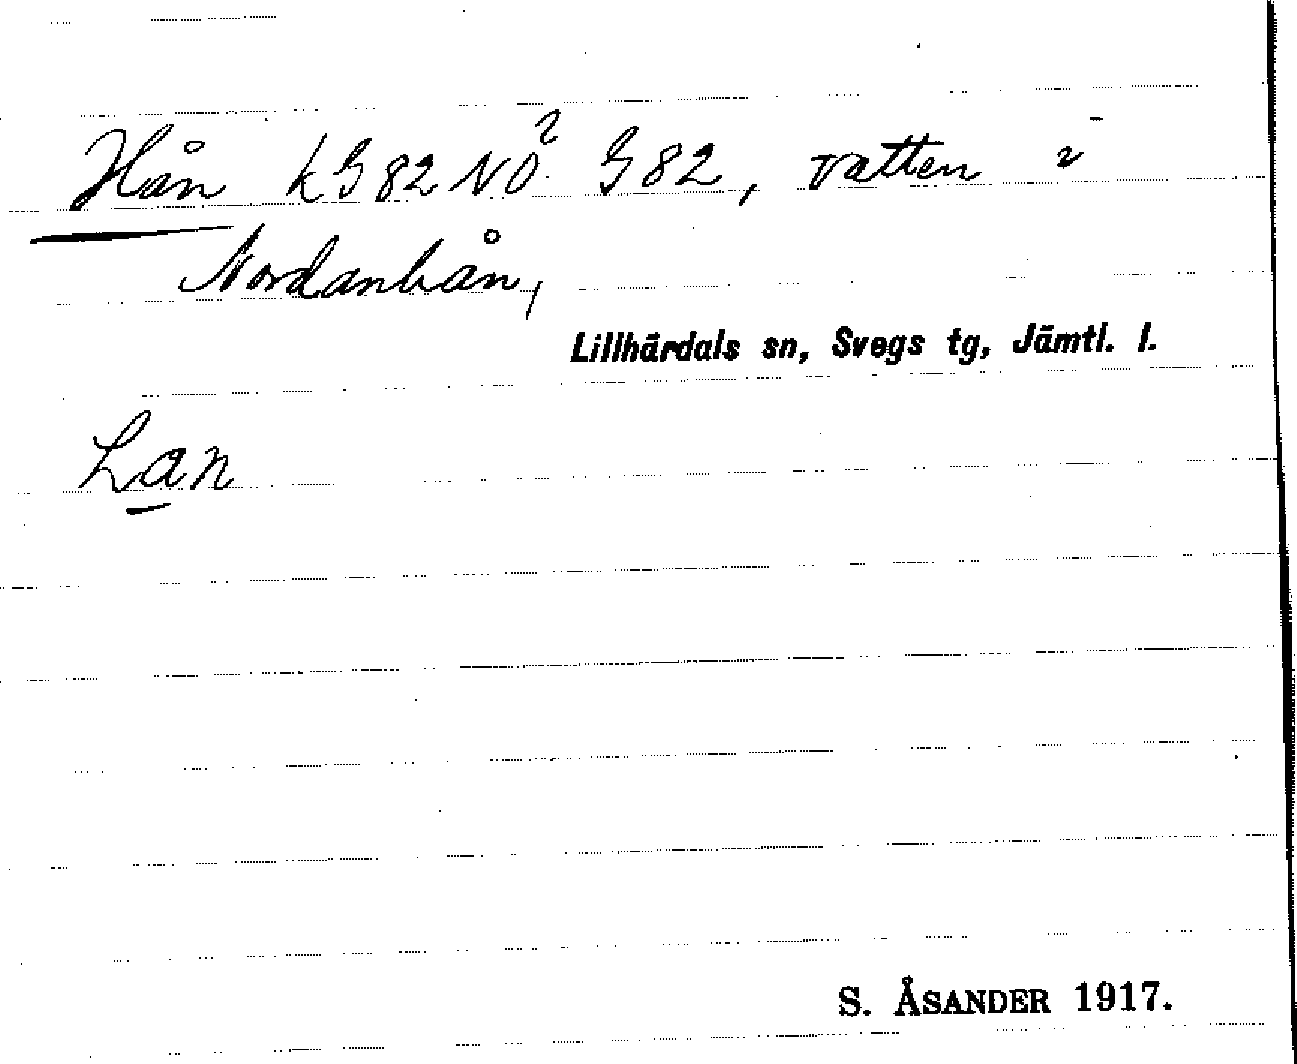 Hån kG82NO² G82, vatten i
Nordanhån,
Lillhärdals sn, Svegs tg, Jämtl. l.
Lan
S. ÅSANDER 1917.